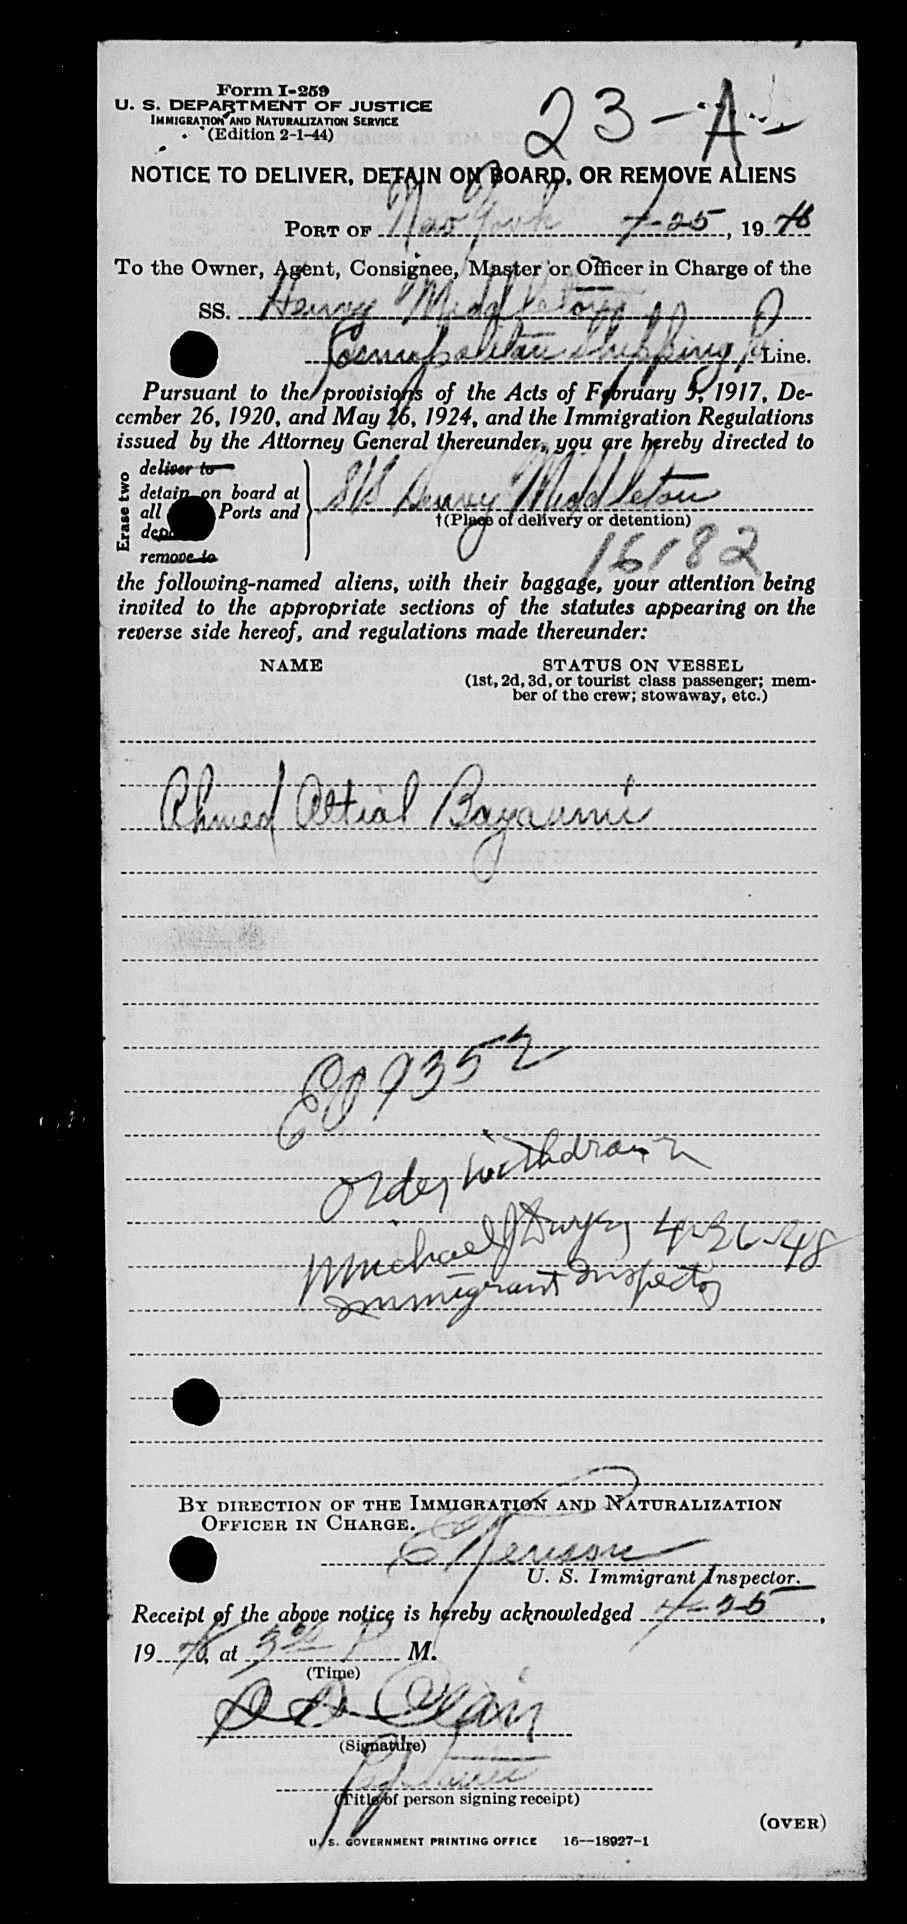 Form I-259
U. S. DEPARTMENT OF JUSTICE
IMMIGRATION AND NATURALIZATION SERVICE
(Edition 2-1-44)
23-A
NOTICE TO DELIVER, DETAIN ON BOARD, OR REMOVE ALIENS
PORT OF New York 4-25, 1948
To the Owner, Agent, Consignee, Master or Officer in Charge of the
SS. Henry Middleton
Cosmopolitan Shipping Co Line.
Pursuant to the provisions of the Acts of February 5, 1917, De-
cember 26, 1920, and May 26, 1924, and the Immigration Regulations
issued by the Attorney General thereunder, you are hereby directed to
Erase two
deliver to
detain on board at
all Ports and
remove to
S/S Henry Middleton
†(Place of delivery or detention)
16182
the following-named aliens, with their baggage, your attention being
invited to the appropriate sections of the statutes appearing on the
reverse side hereof, and regulations made thereunder:
NAME STATUS ON VESSEL
(1st, 2d, 3d, or tourist class passenger; mem-
ber of the crew; stowaway, etc.)
Ahmed Attial Bayaumi
EO 9352
Order Withdrawn
Michael J Dwyer 4-26-48
Immigrant Inspector
BY DIRECTION OF THE IMMIGRATION AND NATURALIZATION
OFFICER IN CHARGE.
U. S. Immigrant Inspector.
Receipt of the above notice is hereby acknowledged 4-25,
1948, at 3 30 P M.
(Time)
(Signature)
(Title of person signing receipt)
(OVER)
U. S. GOVERNMENT PRINTING OFFICE 16—18927-1